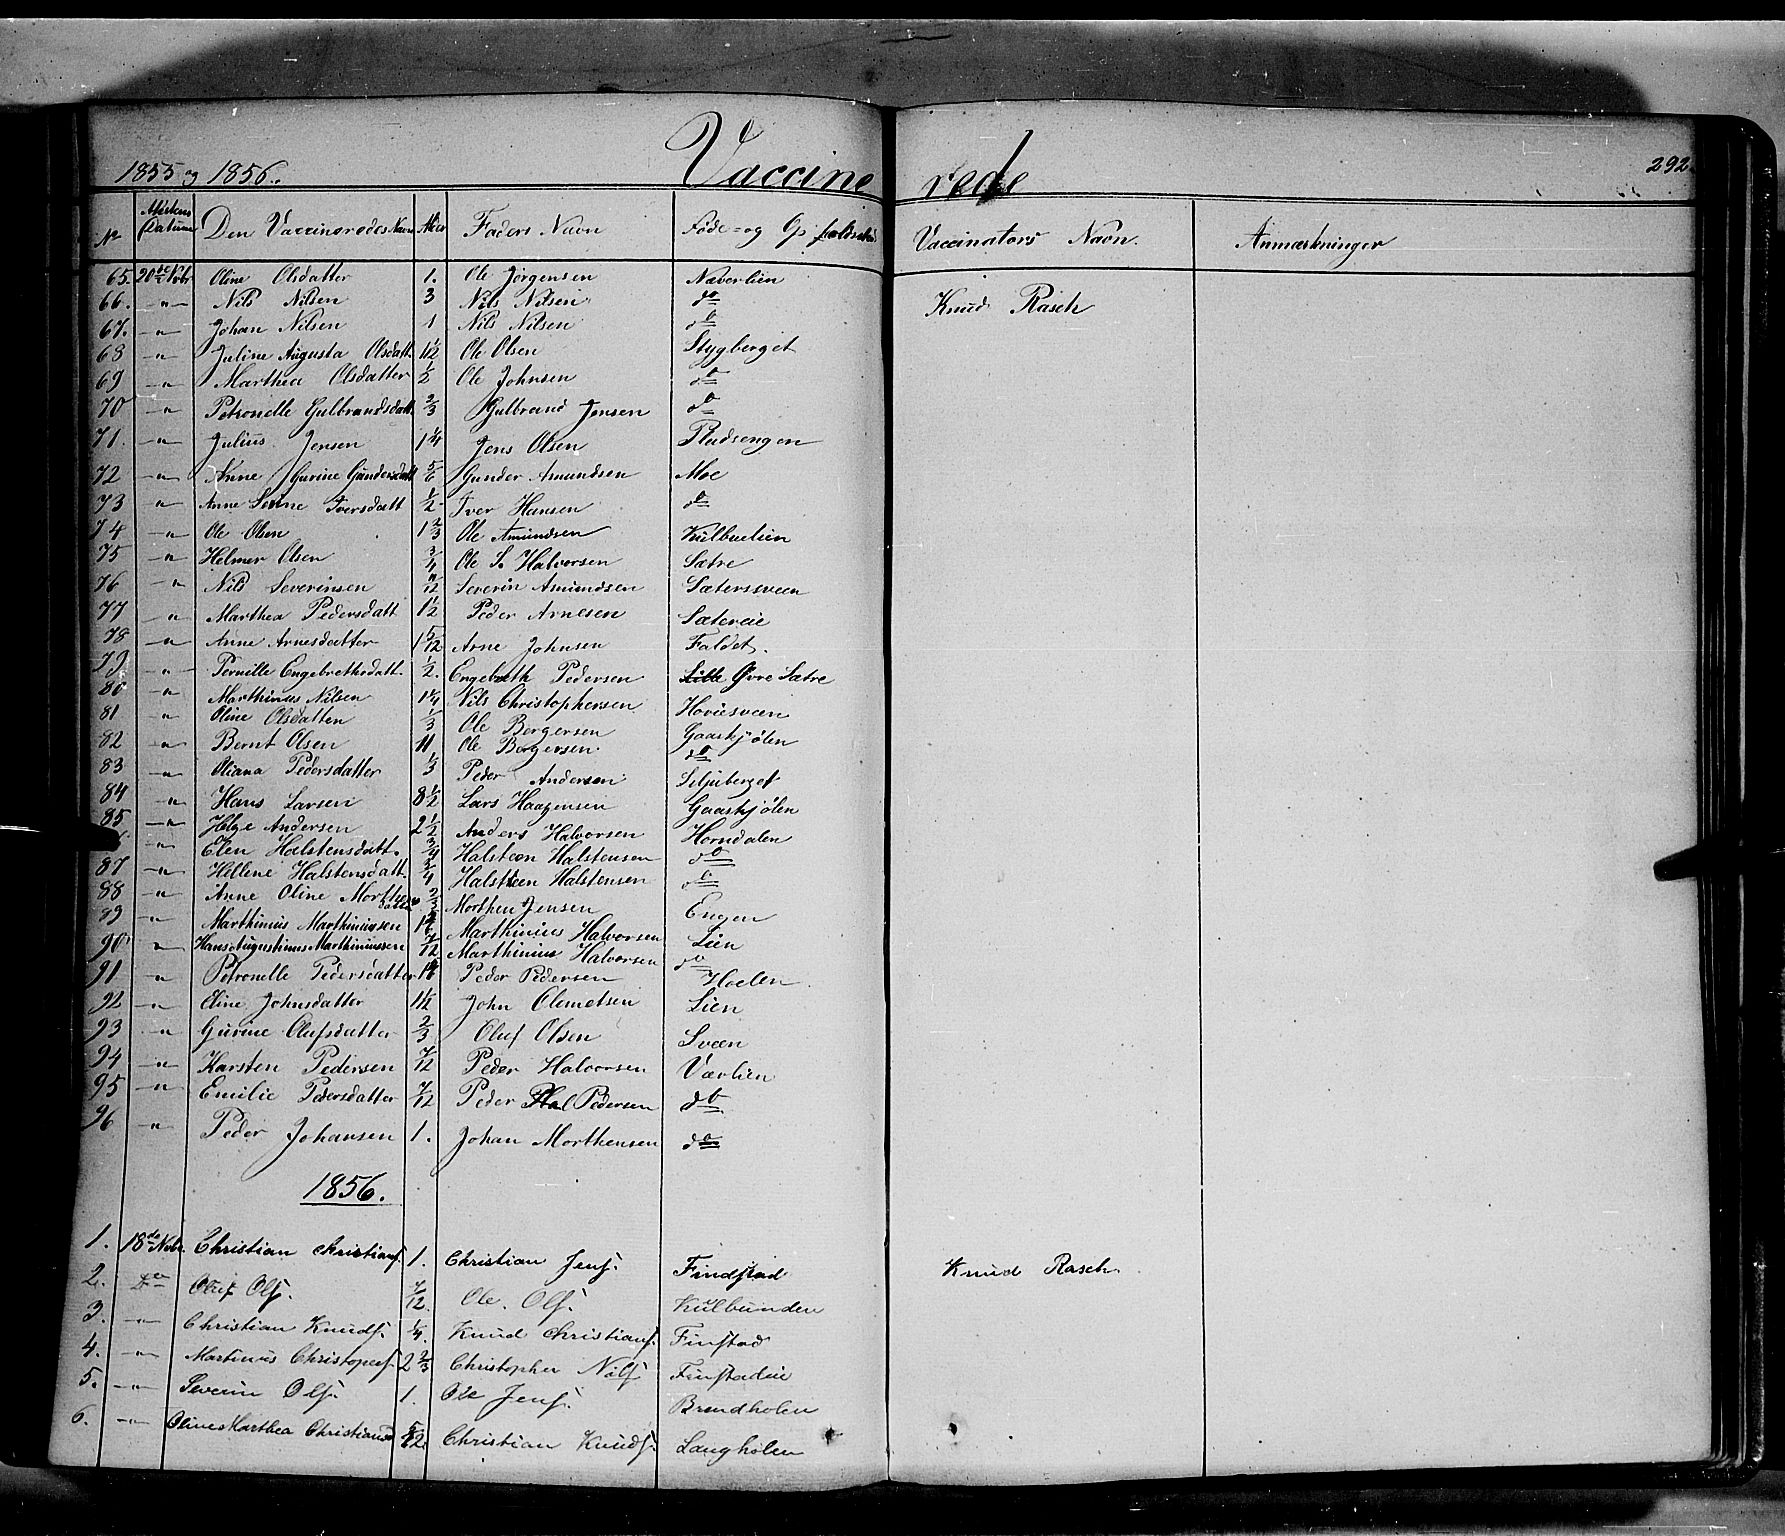 1855 og 1856. Vaccinerede 292
No Attestens Datum Den Vaccineredes Navn Alder Faders Navn Føde- og Opholdssted Vaccinators Navn. Anmærkninger
65. 20de Novbr Oline Olsdatter 1. Ole Jørgensen Næverlien
66. —"— Nils Nilsen 3 Nils Nilsen do Knud Rasch
67. —"— Johan Nilsen 1 Nils Nilsen do
68 —"— Juline Augusta Olsdatt. 1 1/12 Ole Olsen Stygberget
69 —"— Marthea Olsdatter 1/2 Ole Johnsen do
70 —"— Petronelle Gulbrandsdatt. 2/3 Gulbrand Jensen do
71. —"— Julius Jensen 1 1/4 Jens Olsen Pladsengen
72 —"— Anne Gurine Gundersdatt 5/6 Gunder Amundsen Moe
73 —"— Anne Serine Iversdatt 1/2 Iver Hansen do
74 —"— Ole Olsen 1 2/3 Ole Amundsen Kulbuelien
75 —"— Helmer Olsen 3/4 Ole S. Halvorsen Sætre
76 —"— Nils Severinsen /12 Severin Amundsen Sætersveen
77 —"— Marthea Pedersdatt 1 1/2 Peder Arnesen Sætereie
78 —"— Anne Arnesdatter 1 5/12 Arne Johnsen Faldet.
79 —"— Pernille Engebrethsdatt. 1/2. Engebreth Pedersen Øvre Sætre
80 —"— Marthinus Nilsen 1 1/4 Nils Christophersen Hoviesveen
81 —"— Oline Olsdatter 1/3 Ole Bergersen Gaaskjølen
82 —"— Bernt Olsen 11 Ole Bergersen do
83 —"— Oliana Pedersdatter 1/3 Peder Andersen Siljuberget
84 —"— Hans Larsen 8 1/2 Lars Haagensen Gaaskjølen
85 —"— Helge Andersen 2 1/2 Anders Halvorsen Horndalen
—"— Elen Halstensdatt. 3/4 Halsteen Halstensen do
87 —"— Hellene Halstensdatt. 3/4 Halsteen Halstensen do
88 —"— Anne Oline Morthensdatter 2/3 Morthen Jensen Engen
89 —"— Marthinius Marthiniusen 1 Marthinius Halvorsen Lien
90 —"— Hans Augustinus Marthiniussen 7/12 Marthinius Halvorsen do
91 —"— Petronelle Pedersdatter 1 Peder Pedersen Hoelen.
92 —"— Eline Johnsdatter 1 1/12 John Clemetsen Lien
93 —"— Gurine Olufsdatter 2/3 Oluf Olsen Sveen
94 —"— Karsten Pedersen 7/12 Peder Halvorsen Værlien
95 —"— Emilie Pedersdatter 7/12 Peder Pedersen do
96 —"— Peder Johansen 1. Johan Morthensen do
1856.
1. 18de Novbr. Christian Christians. 1. Christian Jens. Findstad Knud Rasch.
2. Do Oluf Ols. 7/12. Ole Ols. Kulbunden
3. —"— Christian Knuds. 1/4. Knud Christians. Finstad
4. —"— Martinus Christophers. 2 2/3 Christopher Nils. Finstadeie
5. —"— Severin Ols. 1. Ole Jens. Brendholen
6. —"— Oline Marthea Christiansd Christian Knuds. Langholen